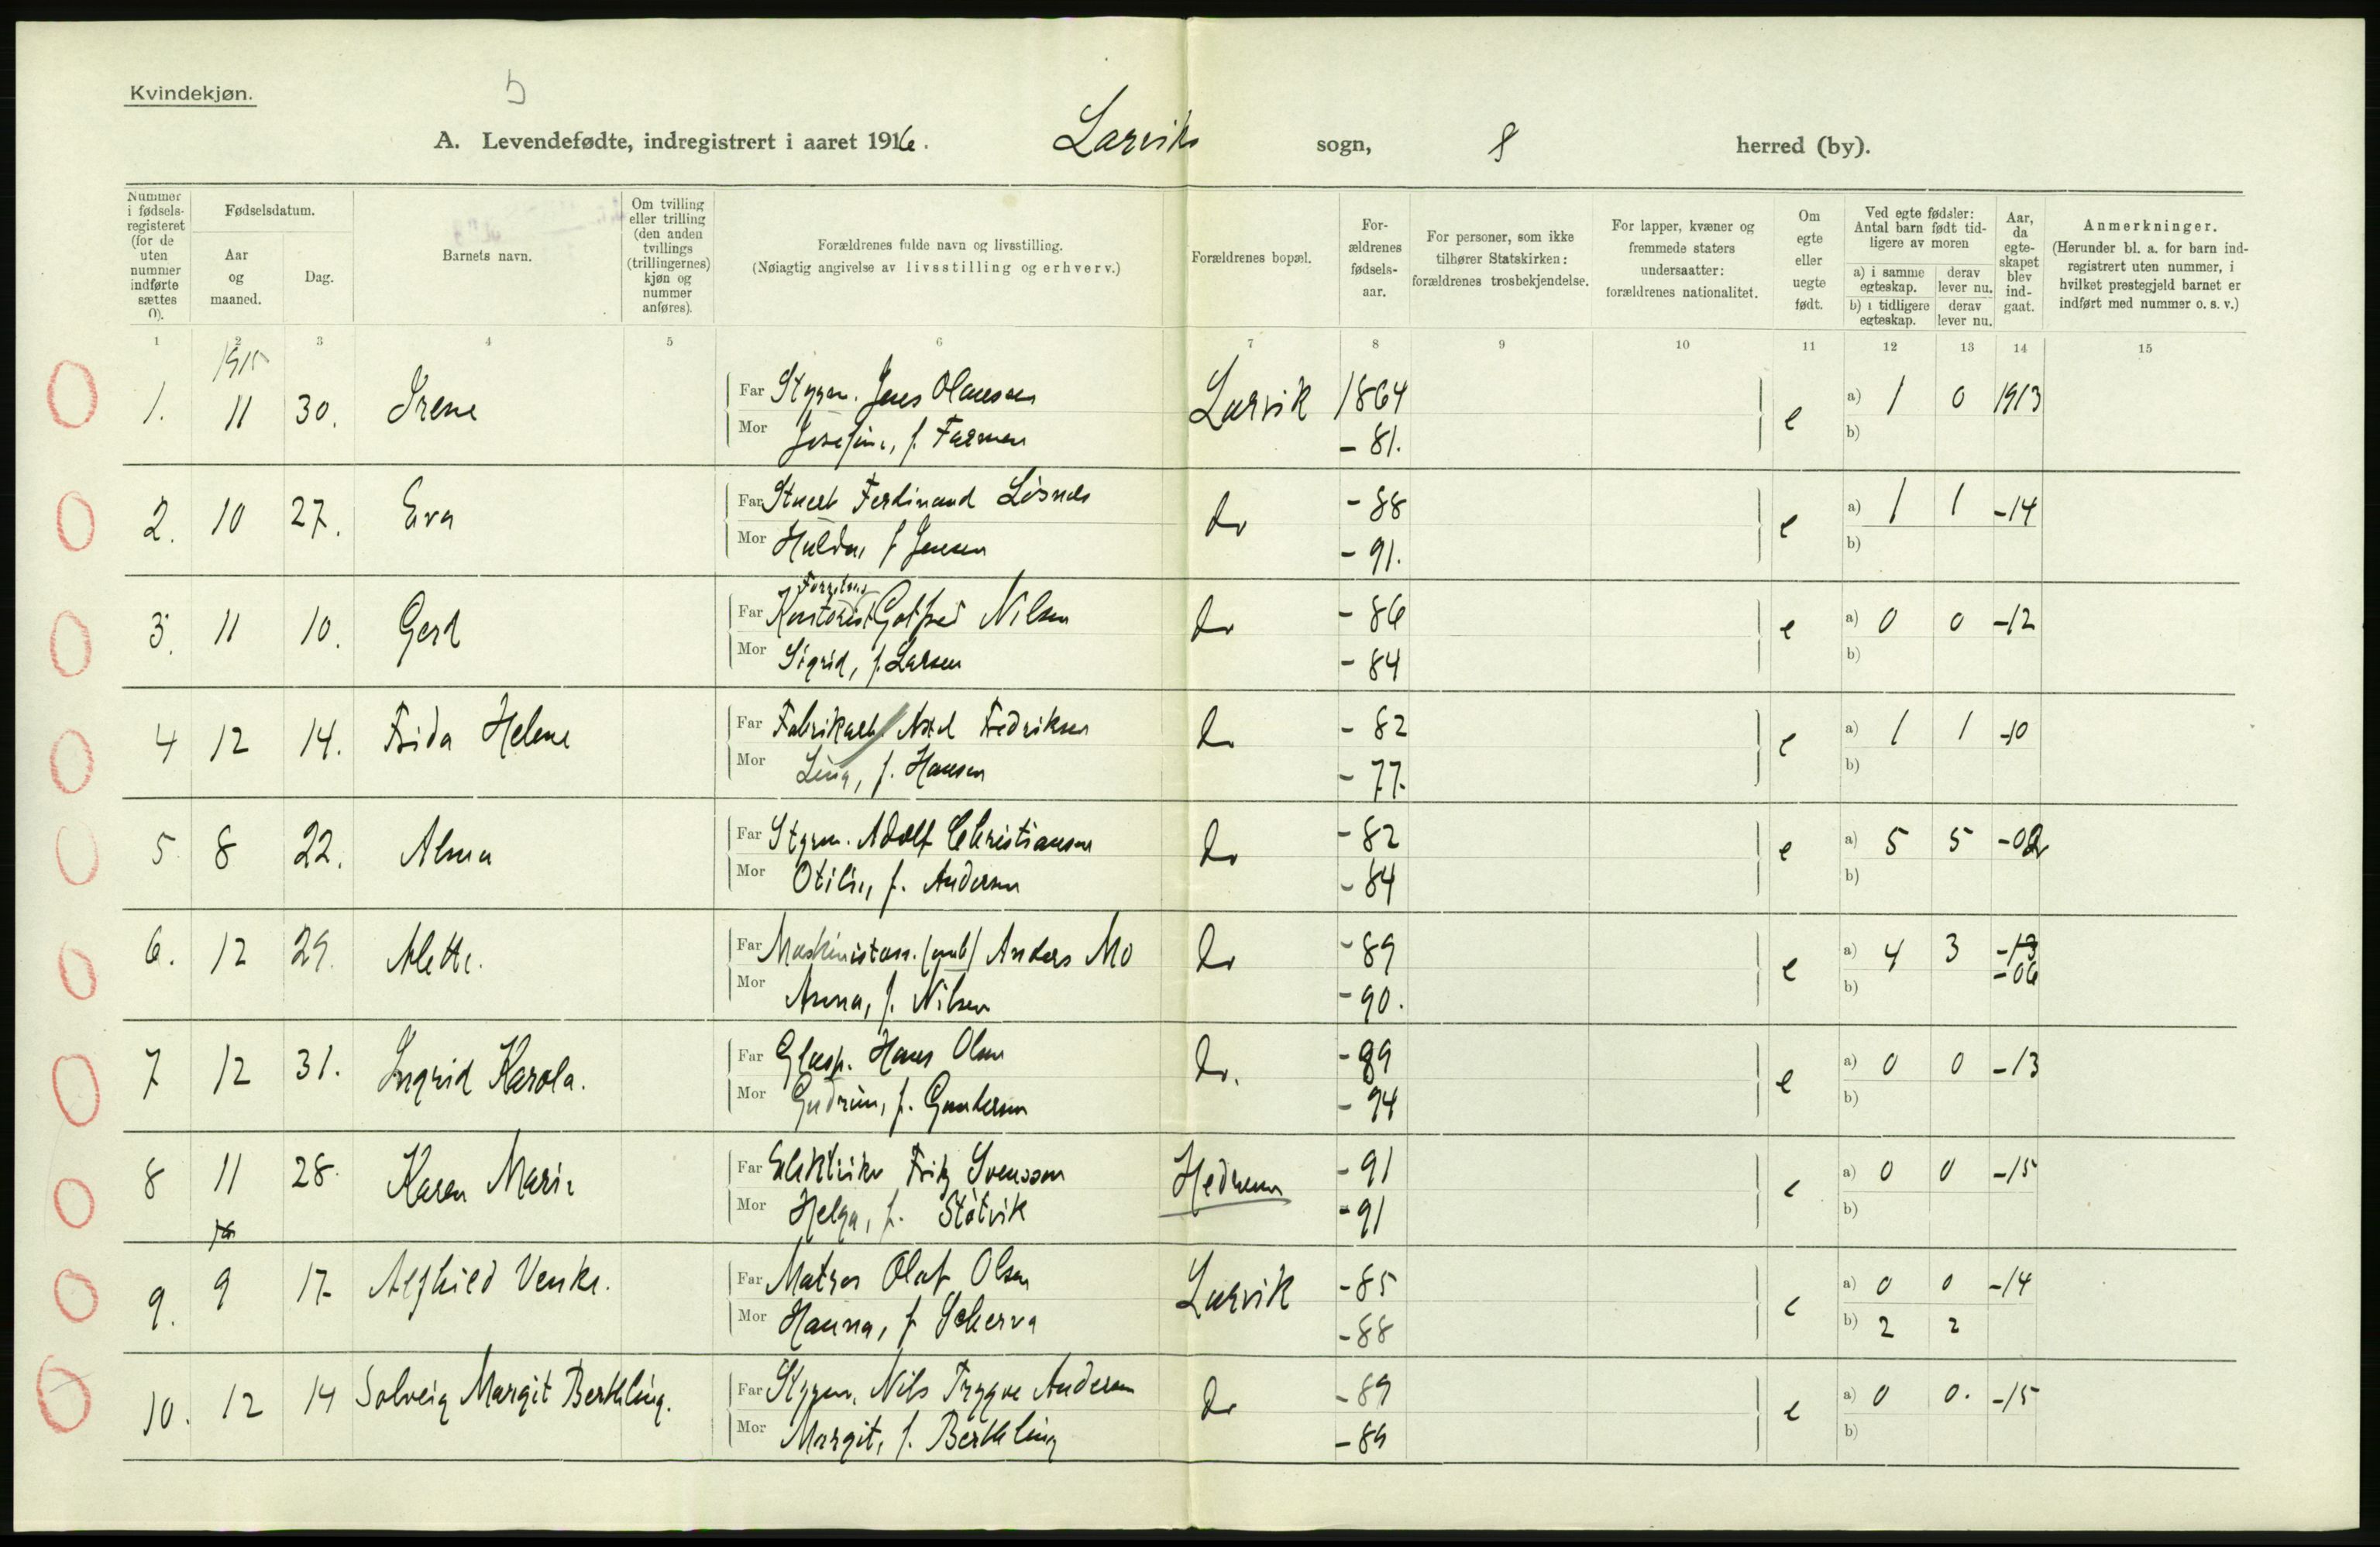 Kvindekjøn.
5
A. Levendefødte, indregistrert i aaret 1916. Larviks sogn, herred (by).
Nummer i fødsels-registeret (for de uten nummer indførte sættes 0).
Fødselsdatum.
Aar og maaned.
Dag.
Barnets navn.
Om tvilling eller trilling (den anden tvillings (trillingernes) kjøn og nummer anføres).
Forældrenes fulde navn og livsstilling.
(Nøiagtig angivelse av livsstilling og erhverv.)
Forældrenes bopæl.
For-ældrenes fødsels-aar.
For personer, som ikke tilhører Statskirken: forældrenes trosbekjendelse.
For lapper, kvæner og fremmede staters undersaatter: forældrenes nationalitet.
Om egte eller uegte født.
Ved egte fødsler: Antal barn født tid-ligere av moren
a) i samme egteskap.
derav lever nu.
b) i tidligere egteskap.
derav lever nu.
Aar, da egte-skapet blev ind-gaat.
Anmerkninger.
(Herunder bl. a. for barn ind-registrert uten nummer, i hvilket prestegjeld barnet er indført med nummer o. s. v.)
1 2 3 4 5 6 7 8 9 10 11 12 13 14 15
1915
1. 11 30. Irene Far Styrm. Jens Olaussen Larvik 1864 e a) 1 0 1913
Mor Josefine, f. Farmen - 81. b)
2. 10 27. Eva Far Ferdinand Løsnes do - 88 e a) 1 1 -14
Mor Hulda, f Jensen - 91. b)
3. 11 10. Gerd Far Kontorist Gotfred Nilsen do - 86 e a) 0 0 -12
Mor Sigrid, f. Larsen - 84 b)
4 12 14. Frida Helene Far Fabrikarb. Axel Fredriksen do - 82 e a) 1 1 -10
Mor Lina, f. Hansen - 77. b)
5 8 22. Alma Far Styrm. Adolf Christiansen do - 82 e a) 5 5 -02
Mor Otilie, f. Andersen - 84 b)
6. 12 29. Alette. Far Maskinistass. Anders Mo do - 89 e a) 4 3 -13
-06
Mor Anna, f. Nilsen - 90. b)
7 12 31. Ingrid Karola. Far Glasp. Hans Olsen do. - 89 e a) 0 0 -13
Mor Gudrun, f. Gundersen - 94 b)
8 11 28. Karen Marie Far Elektriker Fritz Svensson Hedrum - 91 e a) 0 0 -15
Mor Helga, f. Støtvik - 91 b)
9. 9 17. Alfhild Venke. Far Matros Olaf Olsen Larvik - 85 e a) 0 0 -14
Mor Hanna, f Scherva - 88 b) 2 2
10. 12 14 Solveig Margit Berthling. Far Styrm. Nils Trygve Andersen do - 89 e a) 0 0. -15
Mor Margit, f. Berthling - 89 b)